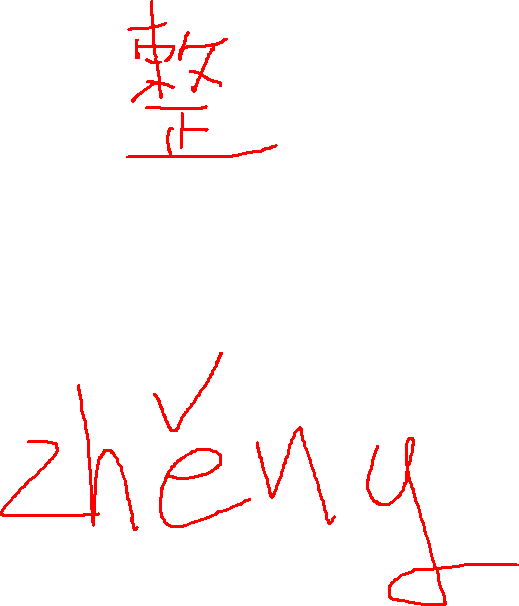 整
zhěng